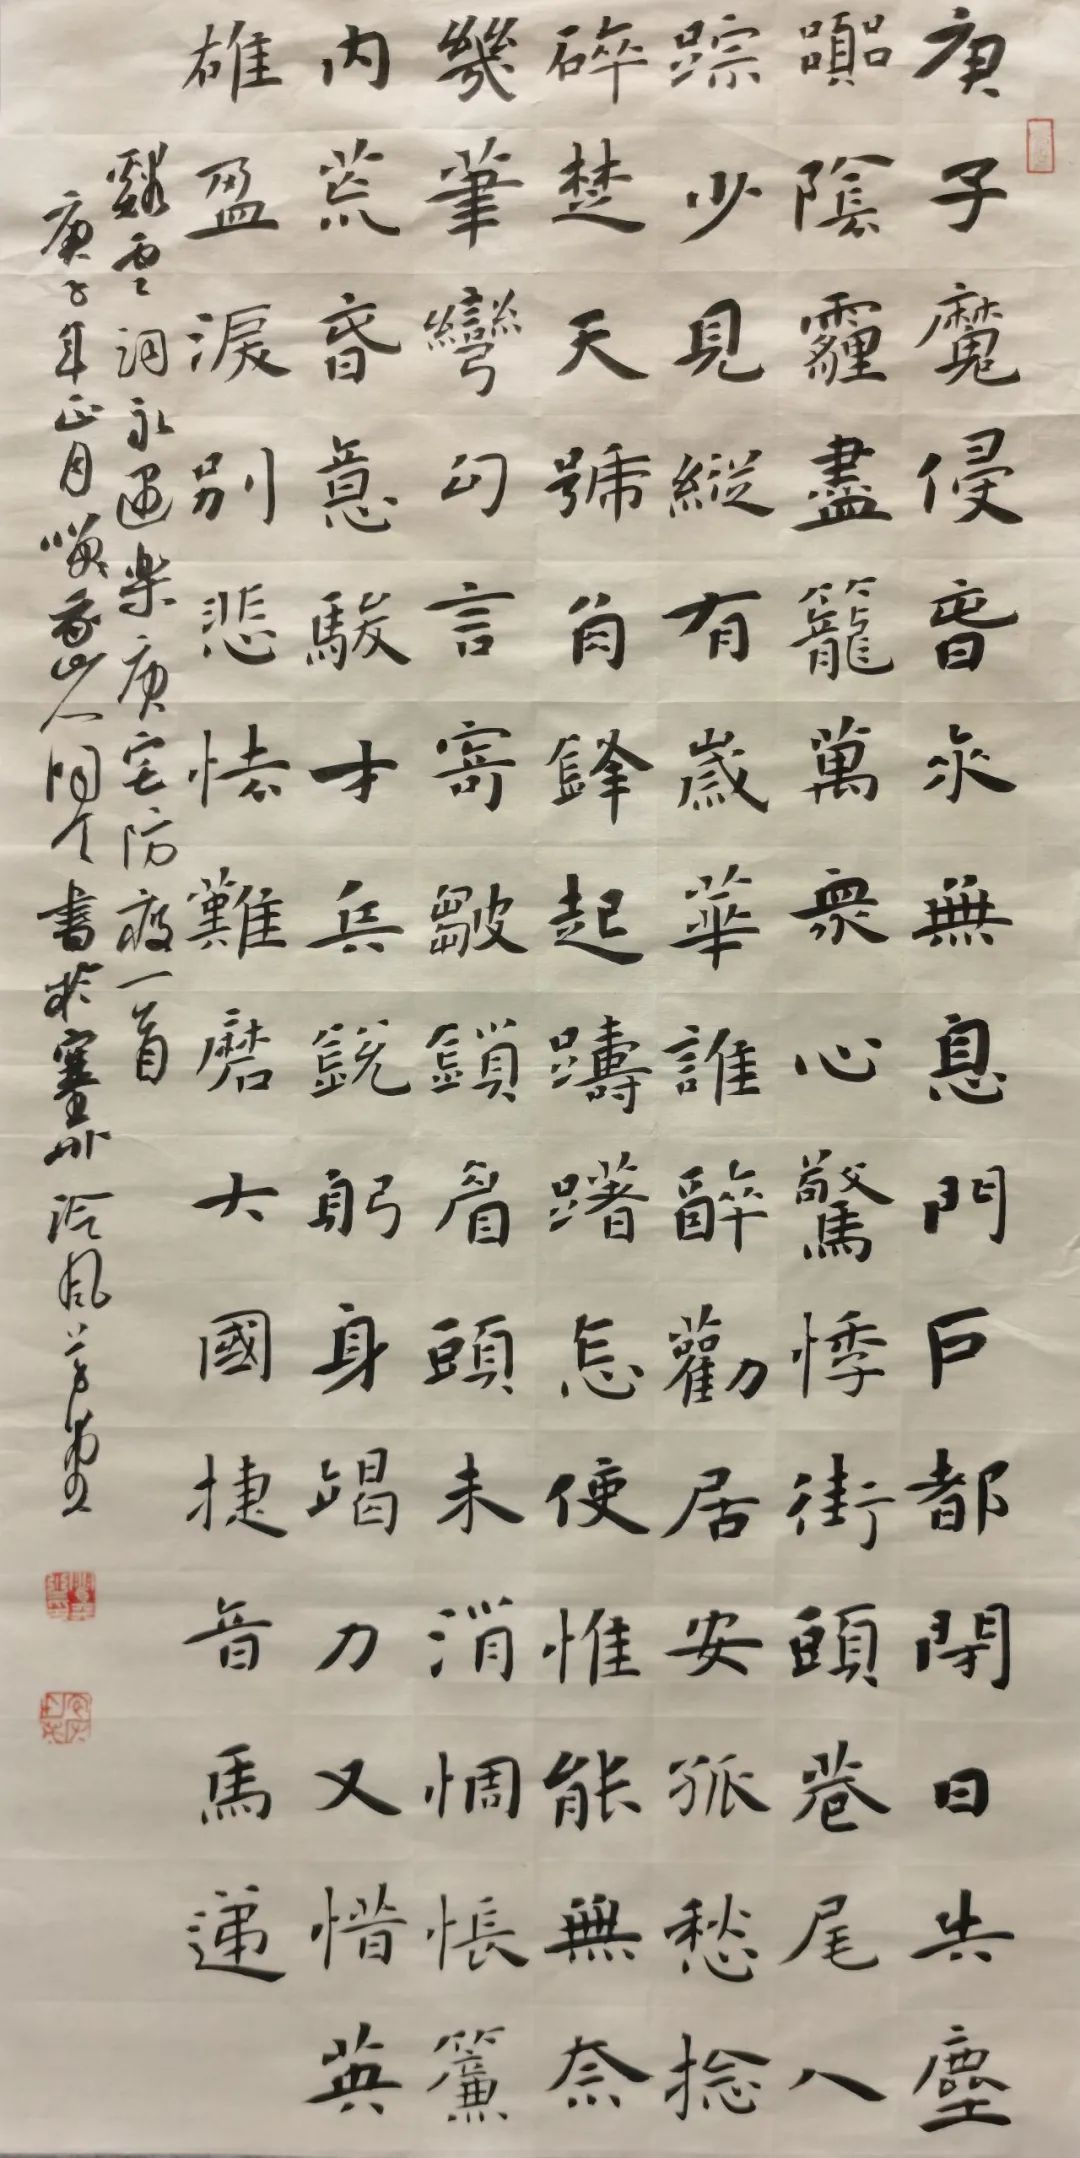 庚子魔侵昏来無息門戶都閉日告塵
躆陰霾盡籠萬衆心驚悸街頭巷尾人
踪少見縱有歲華誰辭勸居安孤愁捻
碎楚天號角鋒起躊躇怎使惟能無奈
幾筆彎勾言寄皺鎖眉頭未消惆悵簾
内荒昏意駿才兵銳躬身竭力又惜英
雄盈淚別悲怯難磨大國捷音馬递
谿雲詞永遇樂庚宅防疫一首
庚子年正月 書於塞外